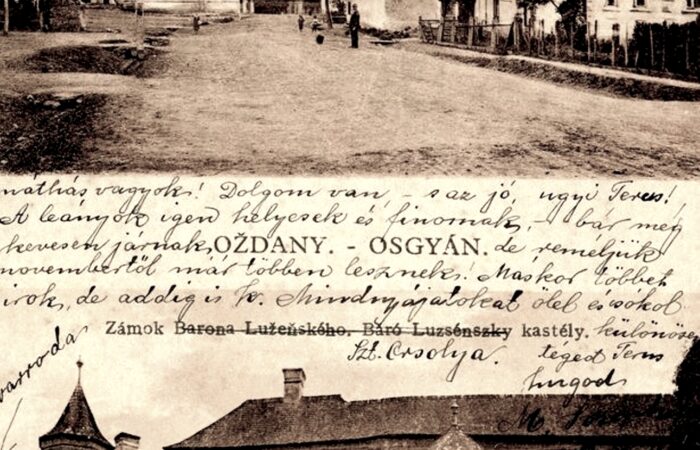 náthás vagyok! Dolgom van, - s az jó, ugyi Terus!
A leányok igen helyesek és finomak, - bár még
kevesen járnak, OŽDANY. - OSGYÁN. de reméljük
novembertől már többen lesznek! Máskor többet
irok, de addig is k. Mindnyájatokat ölel és csókol
Zámok Barona Lužeňského. Báró Luzsénszky kastély. különösen
Szt. Orsolya. téged Terus
hugod
varroda